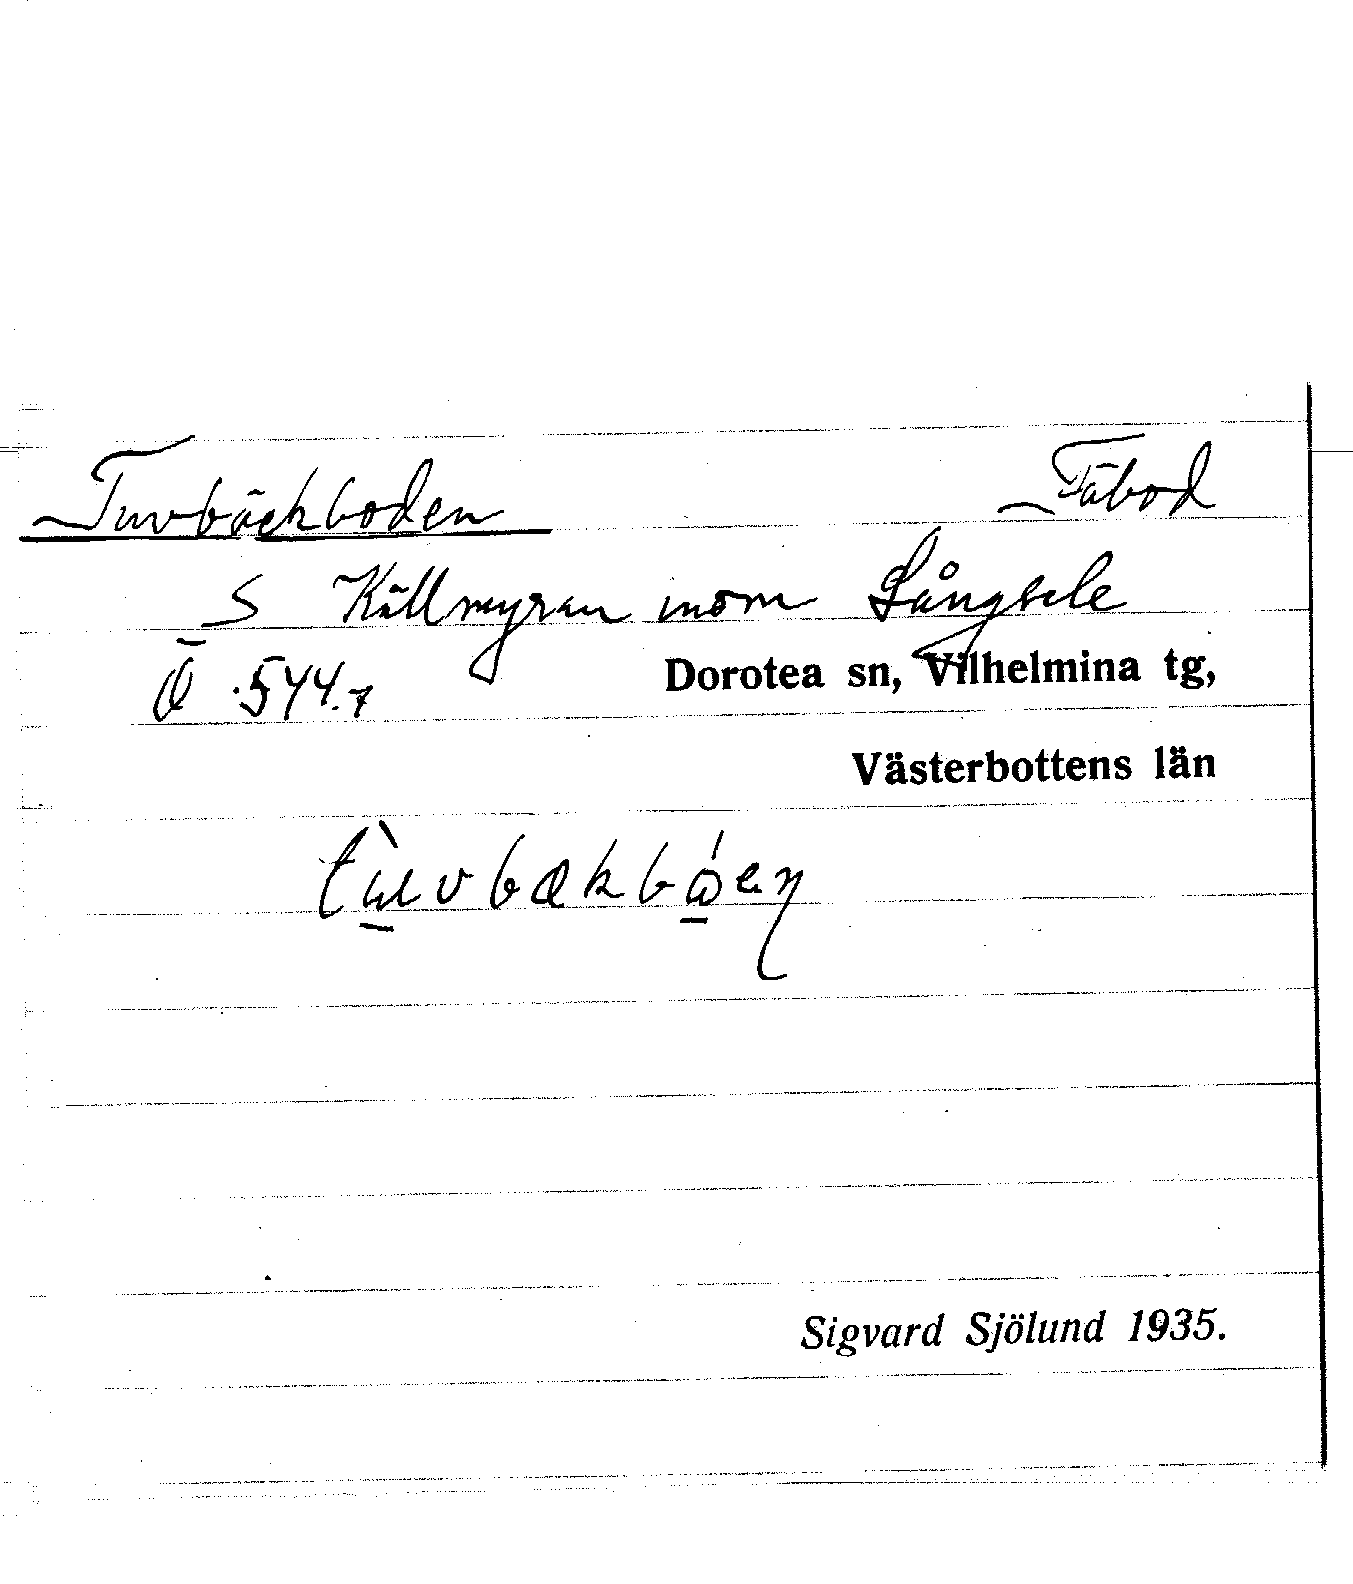 Tuvbäckboden Fäbod
S Källmyran inom Långsele
Ö 544.7 Dorotea sn, Vilhelmina tg,
Västerbottens län
Sigvard Sjölund 1935.